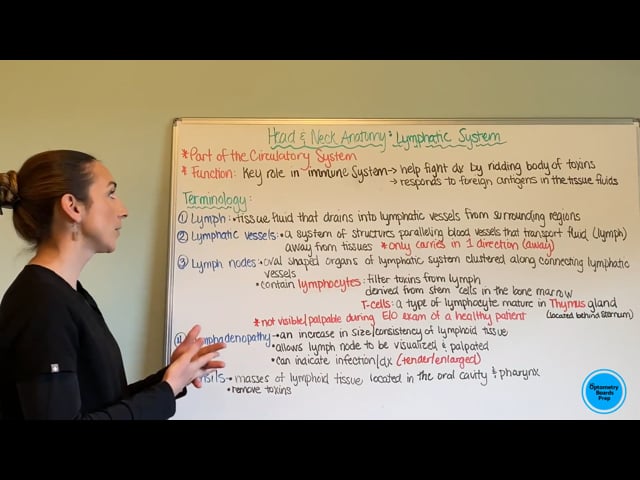 Head & Neck Anatomy: Lymphatic System
*Part of the Circulatory System
* Function: Key role in immune system → help fight dx by ridding body of toxins
→ responds to foreign antigens in the tissue fluids
Terminology:
① Lymph: •tissue fluid that drains into lymphatic vessels from surrounding regions
② Lymphatic vessels: •a system of structures paralleling blood vessels that transport fluid (lymph)
away from tissues *only carries in 1 direction (away)
③ Lymph nodes •oval shaped organs of lymphatic system clustered along connecting lymphatic
vessels
•contain lymphocytes: filter toxins from lymph
derived from stem cells in the bone marrow
T-cells: a type of lymphocyte mature in Thymus gland
(located behind sternum)
*not visible/palpable during E/O exam of a healthy patient
adenopathy •an increase in size/consistency of lymphoid tissue
•allows lymph node to be visualized & palpated
•can indicate infection/dx (tender/enlarged)
sils •masses of lymphoid tissue located in the oral cavity & pharynx
•remove toxins
Optometry
Boards
Prep